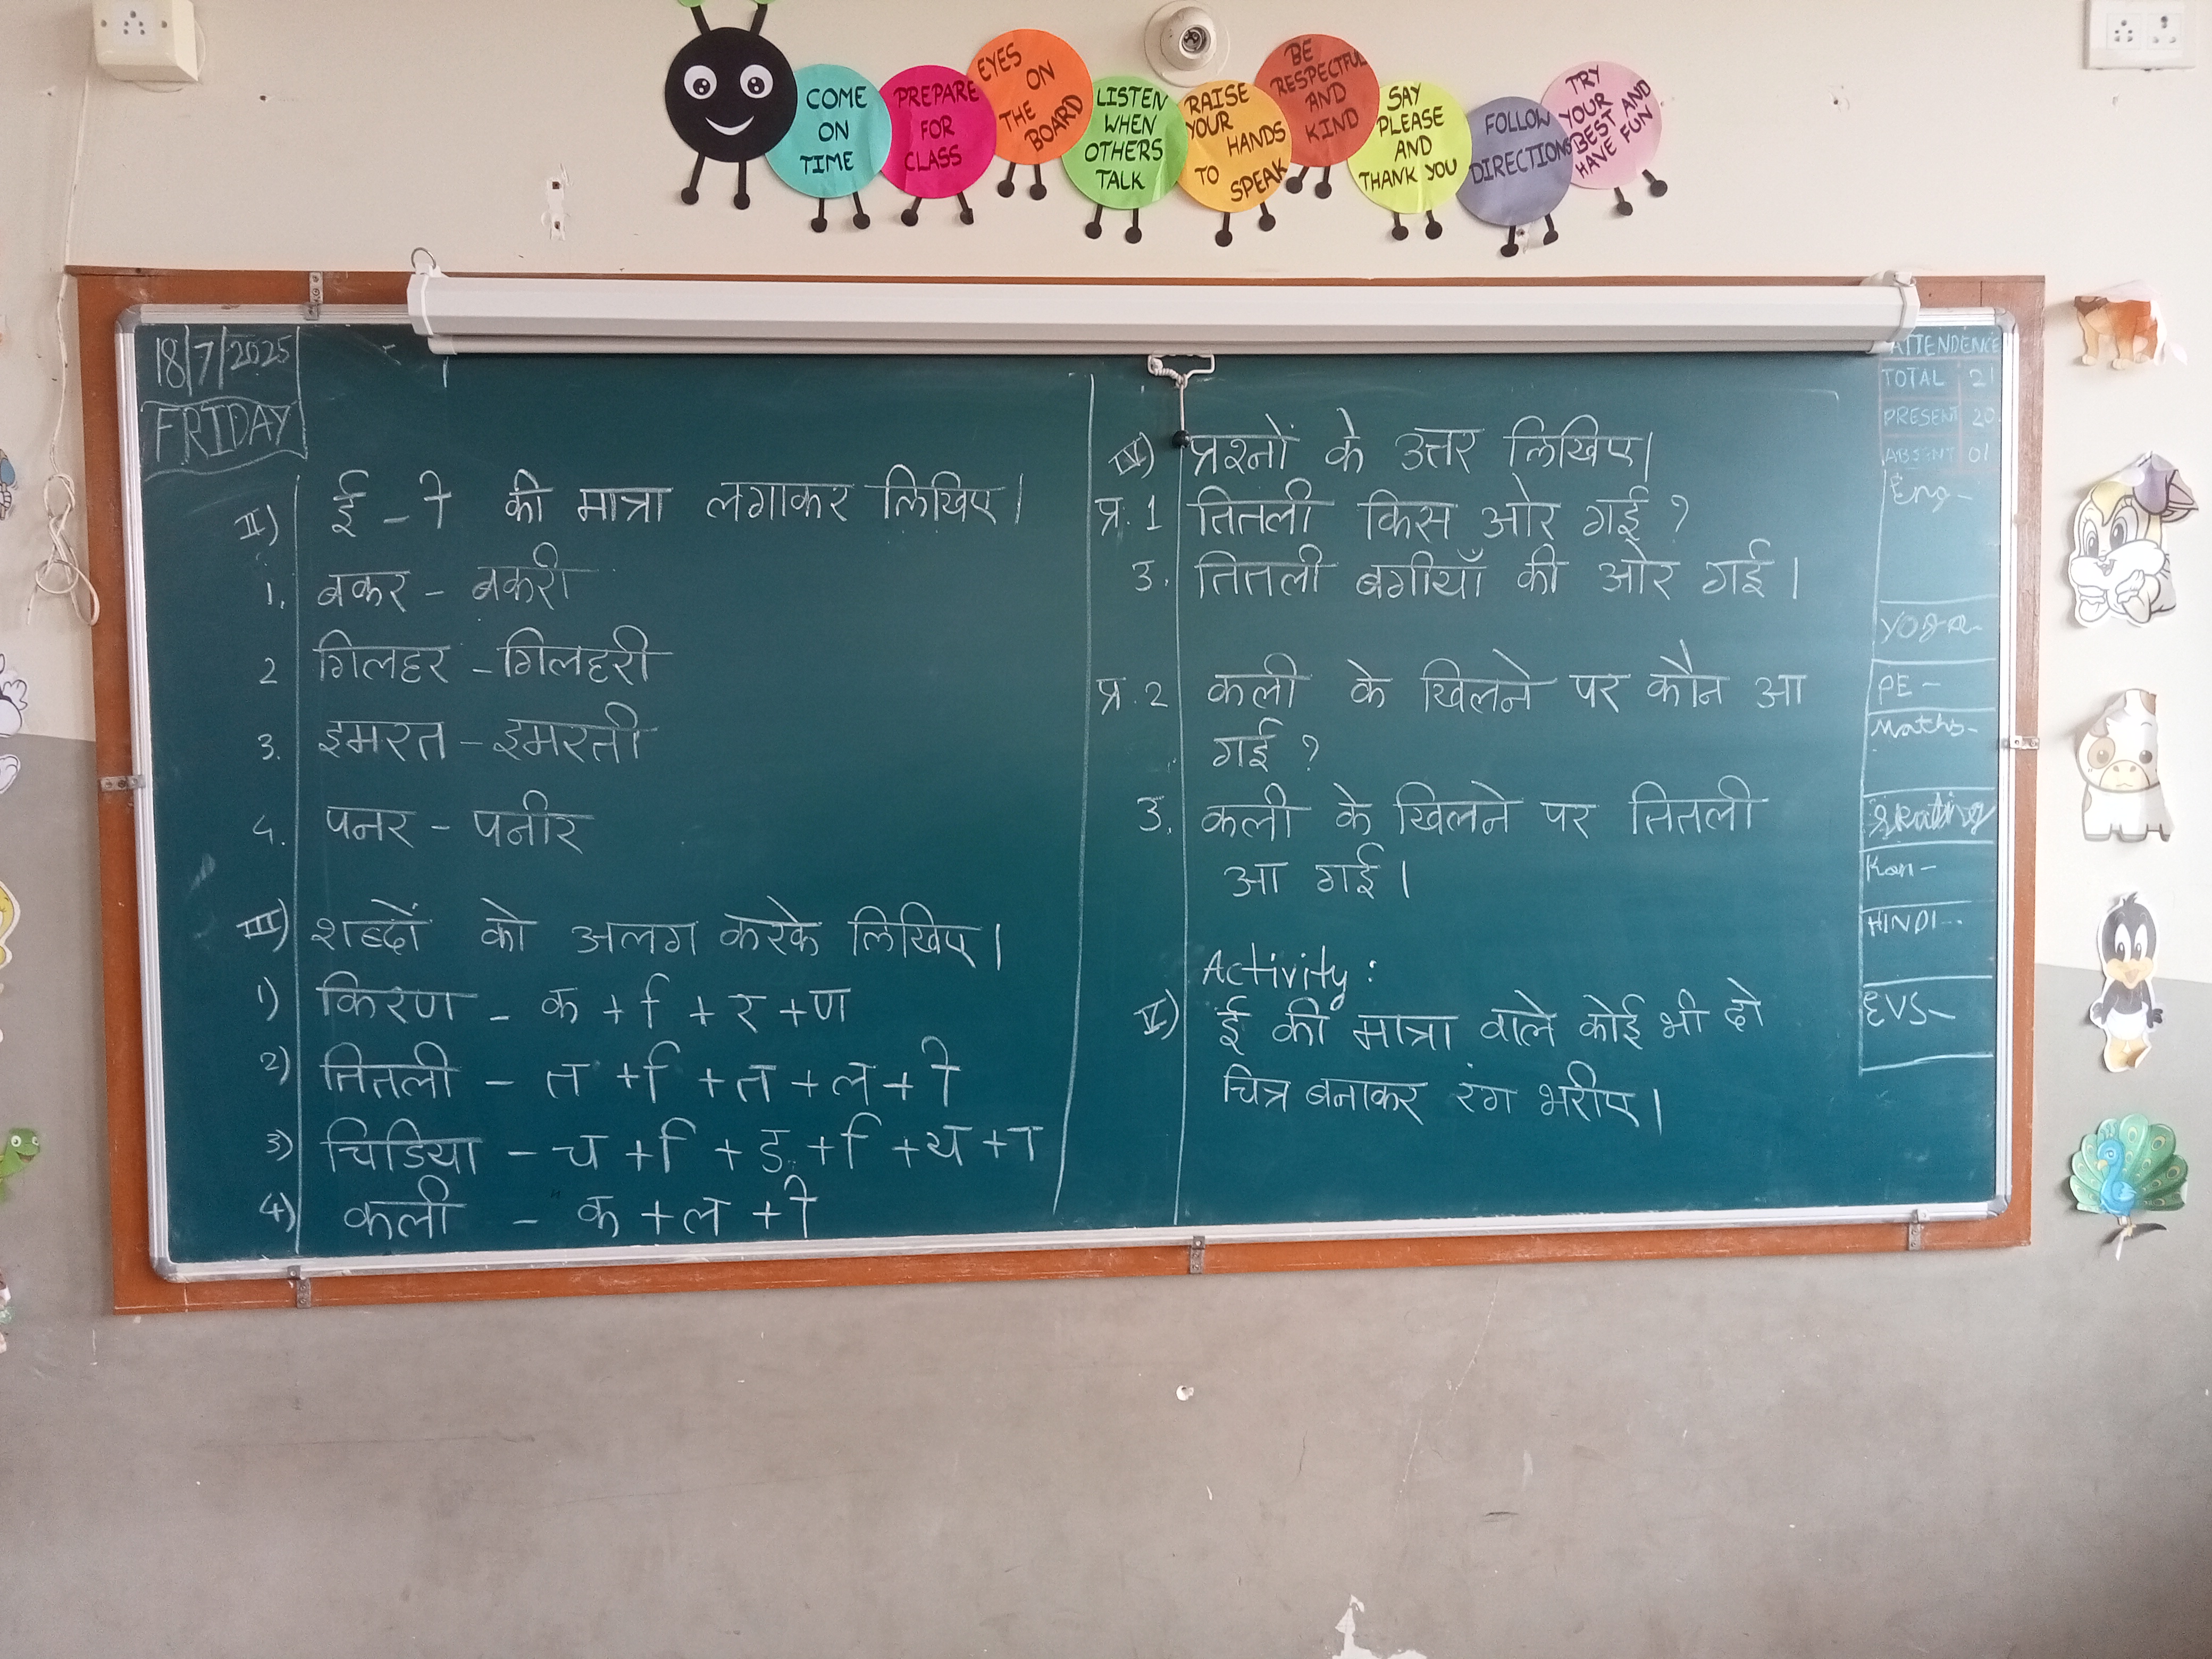 COME ON TIME
PREPARE FOR CLASS
EYES ON THE BOARD
LISTEN WHEN OTHERS TALK
RAISE YOUR HANDS TO SPEAK
BE RESPECTFUL AND KIND
SAY PLEASE AND THANK YOU
FOLLOW DIRECTIONS
TRY YOUR BEST AND HAVE FUN
18/7/2025
FRIDAY
II) ई - ी की मात्रा लगाकर लिखिए।
1. बकर - बकरी
2 गिलहर - गिलहरी
3. इमरत - इमरती
4. पनर - पनीर
III) शब्दों को अलग करके लिखिए।
1) किरण - क + ि + र + ण
2) तितली - त + ि + त + ल + ी
3) चिडिया - च + ि + ड + ि + य + ा
4) कली - क + ल + ी
IV) प्रश्नों के उत्तर लिखिए।
प्र. 1 तितली किस ओर गई ?
उ. तितली बगीयाँ की ओर गई।
प्र. 2 कली के खिलने पर कौन आ
गई ?
उ. कली के खिलने पर तितली
आ गई।
Activity :
V) ई की मात्रा वाले कोई भी दो
चित्र बनाकर रंग भरीए।
ATTENDENCE
TOTAL 21
PRESENT 20
ABSENT 01
Eng -
Yoga -
PE -
Maths -
Skating
Kan -
HINDI -
EVS -